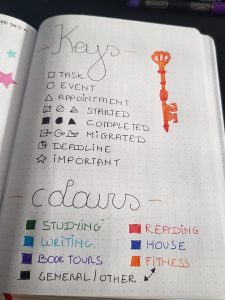 Keys
TASK
EVENT
APPOINTMENT
STARTED
COMPLETED
MIGRATED
DEADLINE
IMPORTANT
colours
STUDYING
READING
WRITING
HOUSE
BOOK TOURS
FITNESS
GENERAL/OTHER